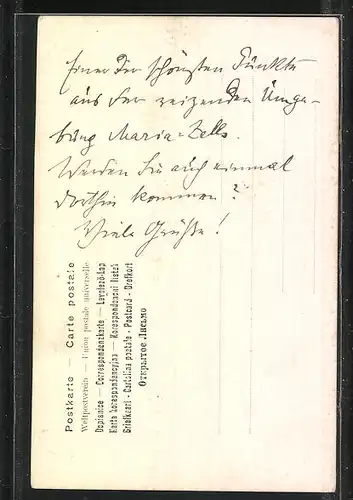 Einer der schönsten Punkte
aus der reizenden Umge-
bung Maria-Zells.
Werden Sie auch einmal
dorthin kommen?
Viele Grüße!
Postkarte — Carte postale
Weltpostverein — Union postale universelle
Dopisnice — Correspondenzkarte — Levelező-Lap
Karta korespondencyjna — Korespondenční lístek
Briefkaart - Cartolina postale - Postcard - Brefkort
Открытое Письмо